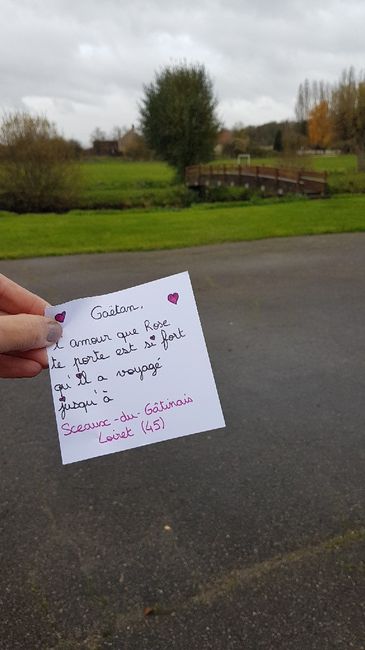 Gaëtan,
l'amour que Rose
te porte est si fort
qu'il a voyagé
jusqu'à
Sceaux-du-Gâtinais
Loiret (45)